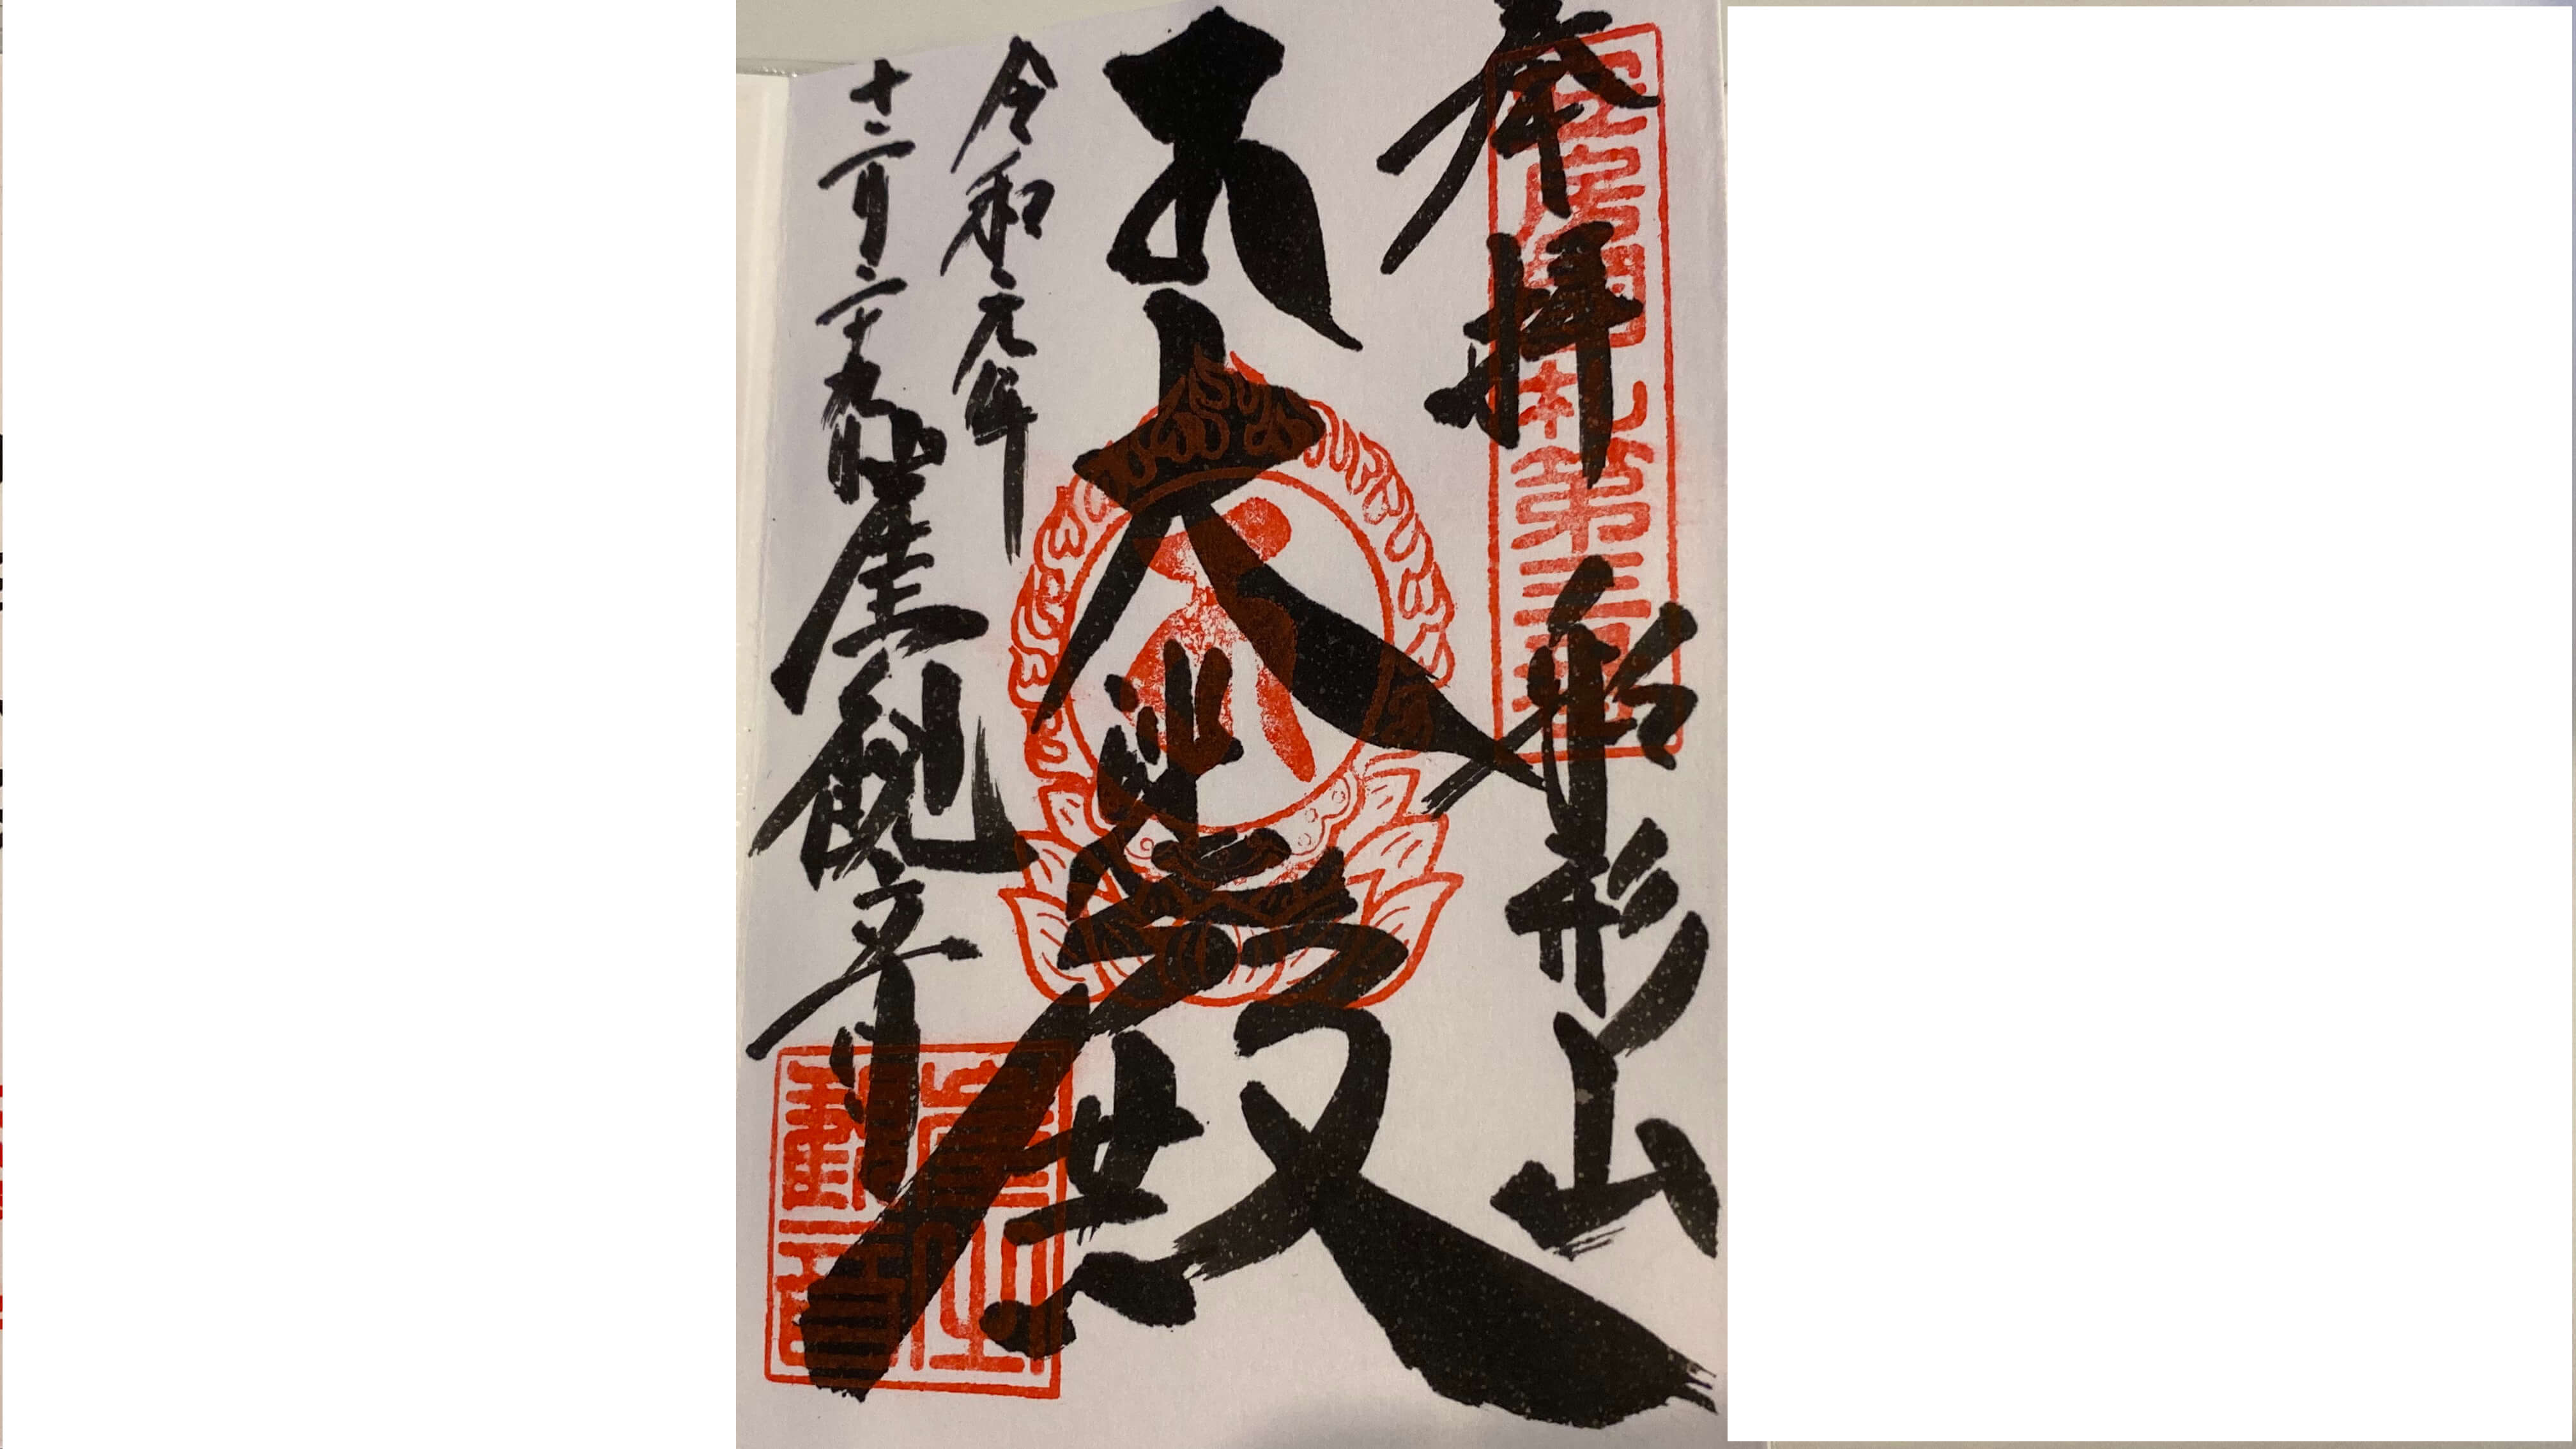 安房国札第三番
奉拝 船形山
大悲殿
令和元年
十二月二十九日
崖観音